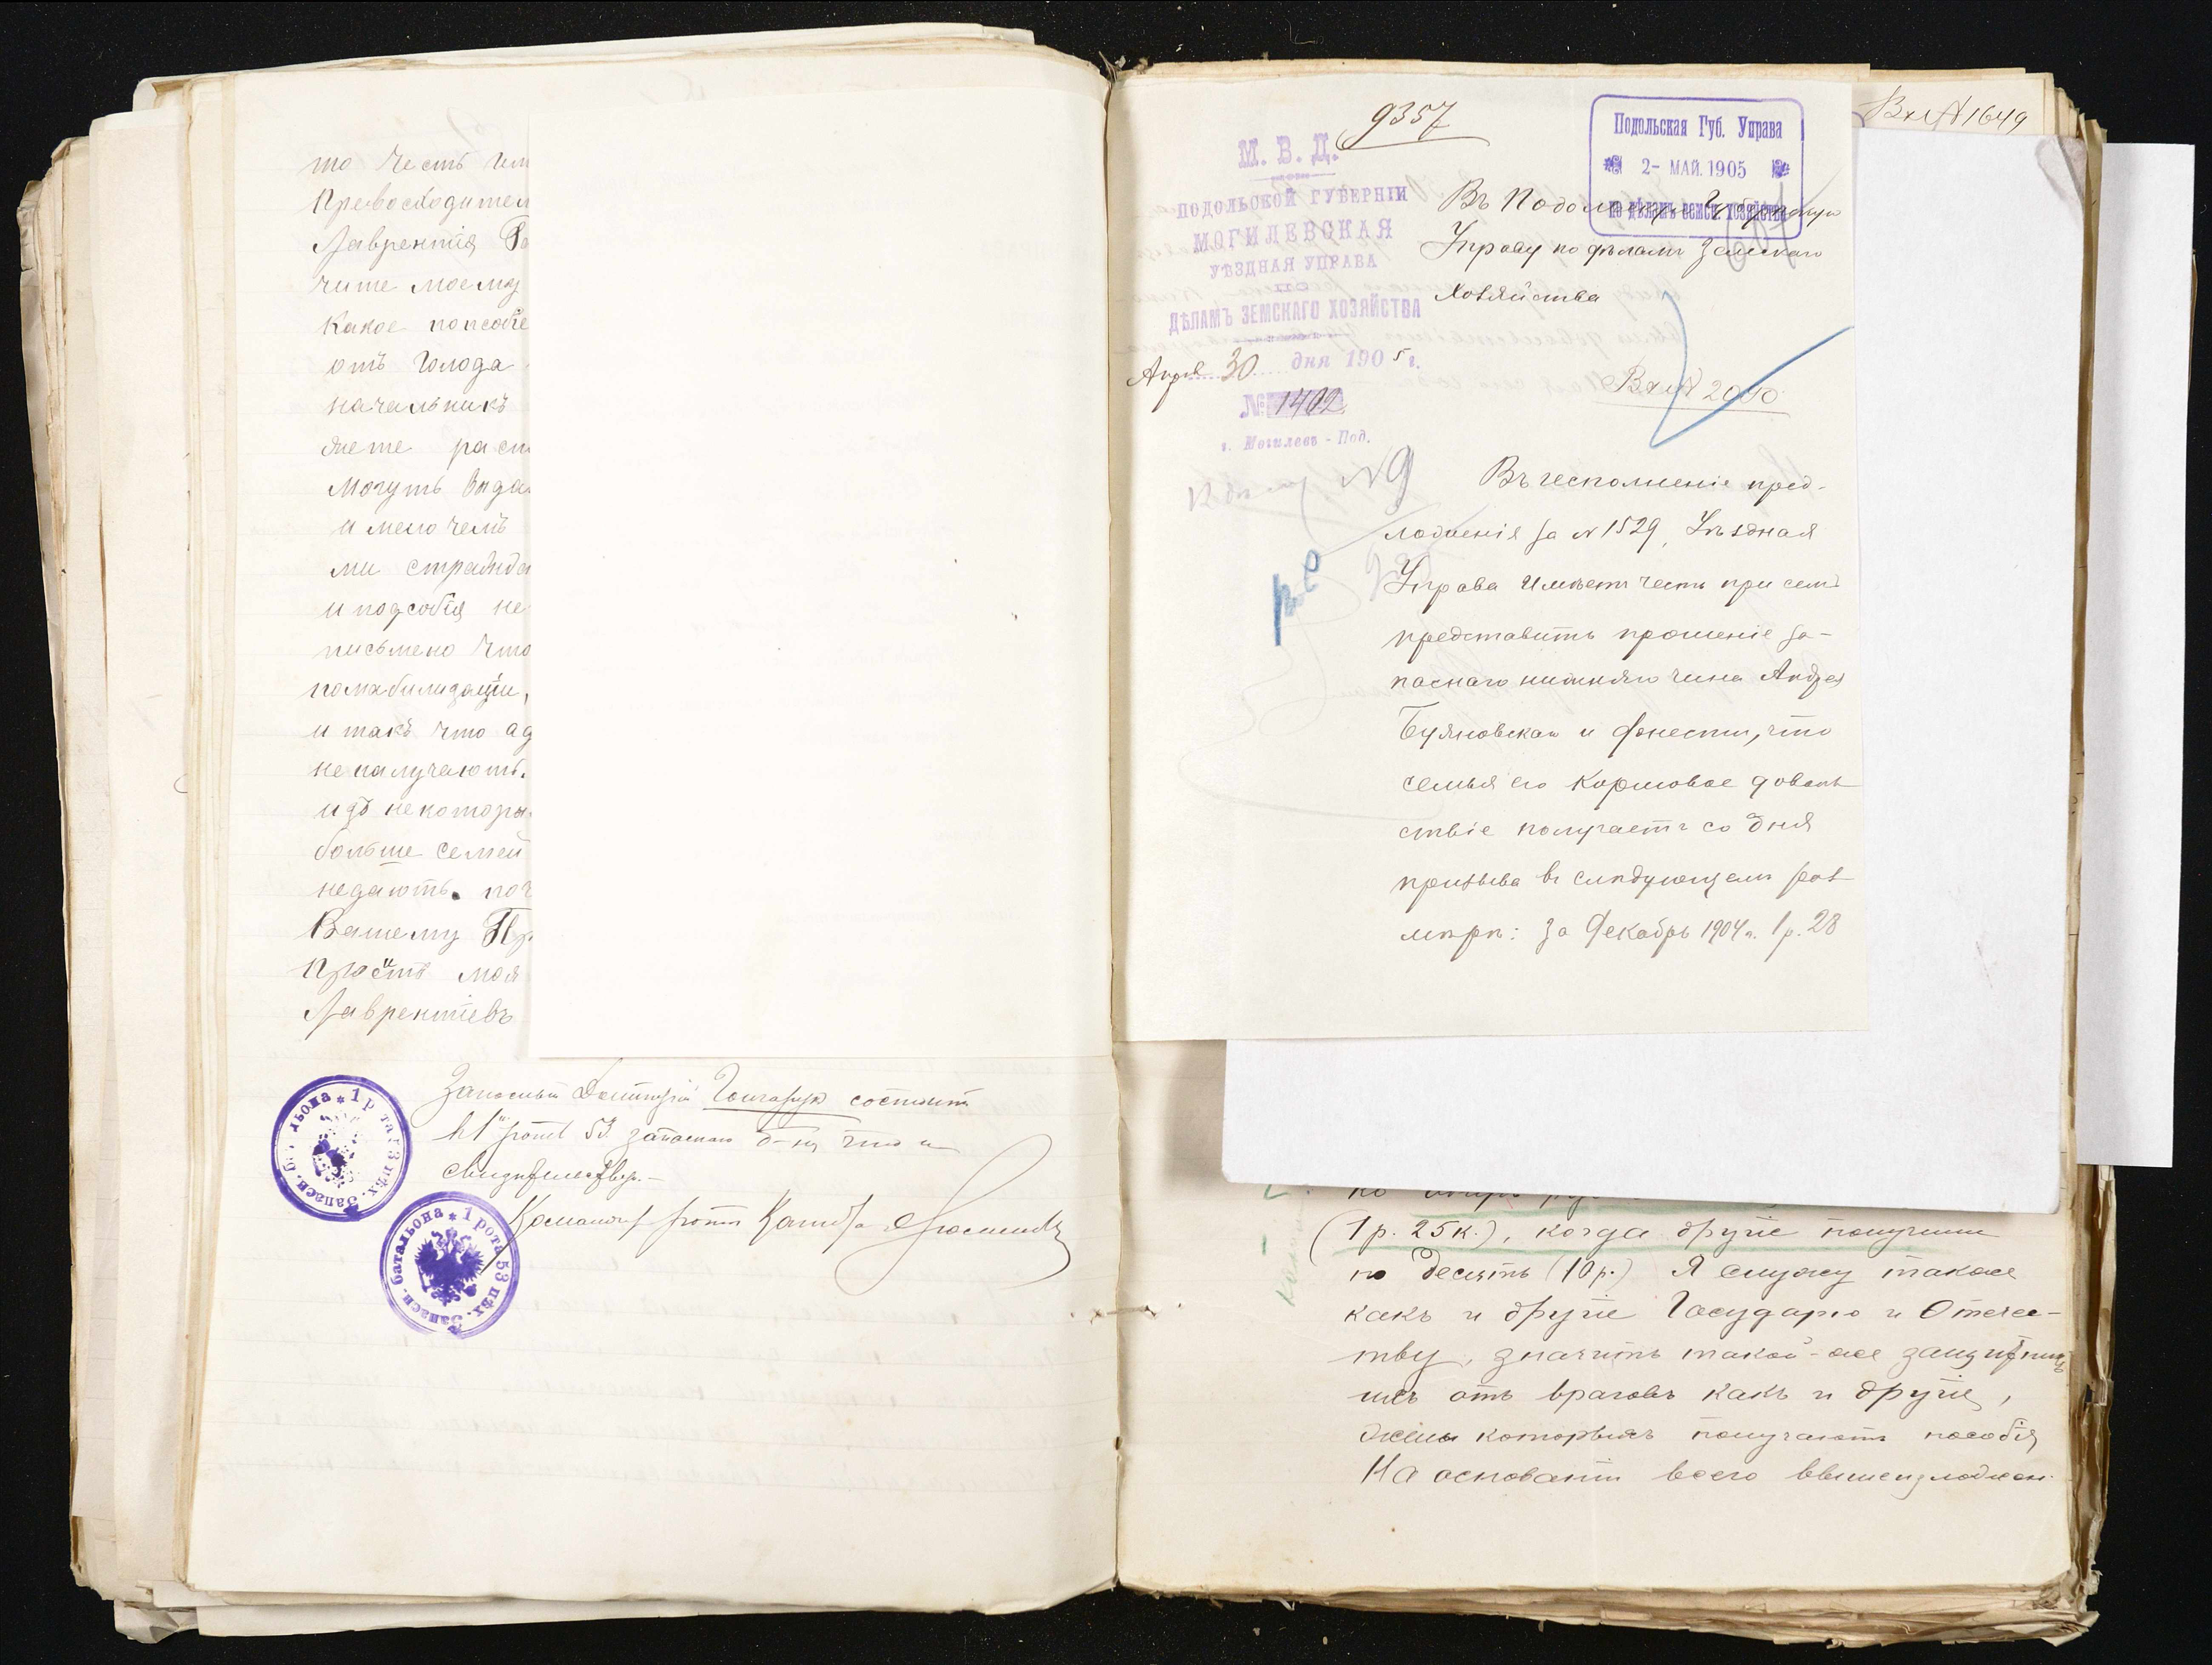 то честь им
Превосходител
Лаврентія Го
чите моему
какое попсобіе
отъ голода
начальникъ
жете расп
могутъ выда
и мено чемъ
ми стражда
и подсобія не
письмено что
помабилизаціи,
и такъ что ад
неполучаютъ.
изъ некоторы
больше семей
недаютъ. поч
Вашему Пр
Простъ моя
Лаврентіевъ
Запасный Дмитрій Гончарук состоит
въ 1й ротѣ 53 запасного б-на что и
свидѣтельствую.-
Командир роты Капитан
1 рота 53 пѣх. Запасн. батальона
1 рота 53 пѣх. Запасн. батальона
9357
М. В. Д.
ПОДОЛЬСКОЙ ГУБЕРНІИ
МОГИЛЕВСКАЯ
УѢЗДНАЯ УПРАВА
ПО
ДѢЛАМЪ ЗЕМСКАГО ХОЗЯЙСТВА
Апрѣля 30 дня 1905 г.
№ 1402
г. Могилевъ - Под.
Подольская Губ. Управа
2- МАЙ. 1905
по дѣламъ земск. хозяйства
Вх № 1649
Въ Подольскую Губернскую
Управу по дѣламъ Земскаго
Хозяйства
Вх № 2050
№ 9
Въ исполненіе пред-
ложенія за № 1529, Уѣздная
Управа имѣетъ честь при семъ
представить прошеніе за-
паснаго нижняго чина Андрея
Буяновскаго и донести, что
семья его кормовое доволь
ствіе получаетъ со дня
призыва въ слѣдующемъ раз
мѣрѣ: за Декабрь 1904 г. 1 р. 28
(1 р. 25 к.), когда другіе получили
по десять (10 р.) Я служу также
какъ и другіе Государю и Отече-
тву, значитъ такой-же защитникъ
ихъ отъ враговъ какъ и другіе,
жены которыхъ получаютъ пособія
На основаніи всего ввышеизложен-